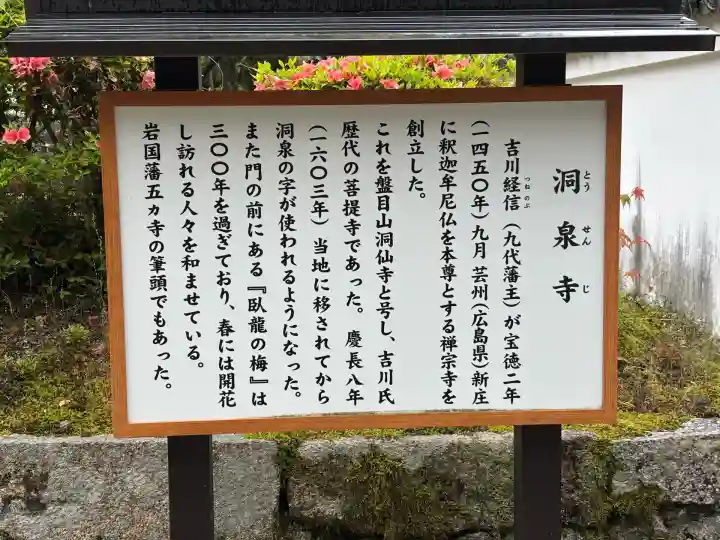 洞泉寺
とうせんじ
吉川経信(九代藩主)が宝徳二年
つねのぶ
(一四五〇年)九月 芸州(広島県)新庄
に釈迦牟尼仏を本尊とする禅宗寺を
創立した。
これを盤目山洞仙寺と号し、吉川氏
歴代の菩提寺であった。 慶長八年
(一六〇三年)当地に移されてから
洞泉の字が使われるようになった。
また門の前にある『臥龍の梅』は
三〇〇年を過ぎており、春には開花
し訪れる人々を和ませている。
岩国藩五ヵ寺の筆頭でもあった。